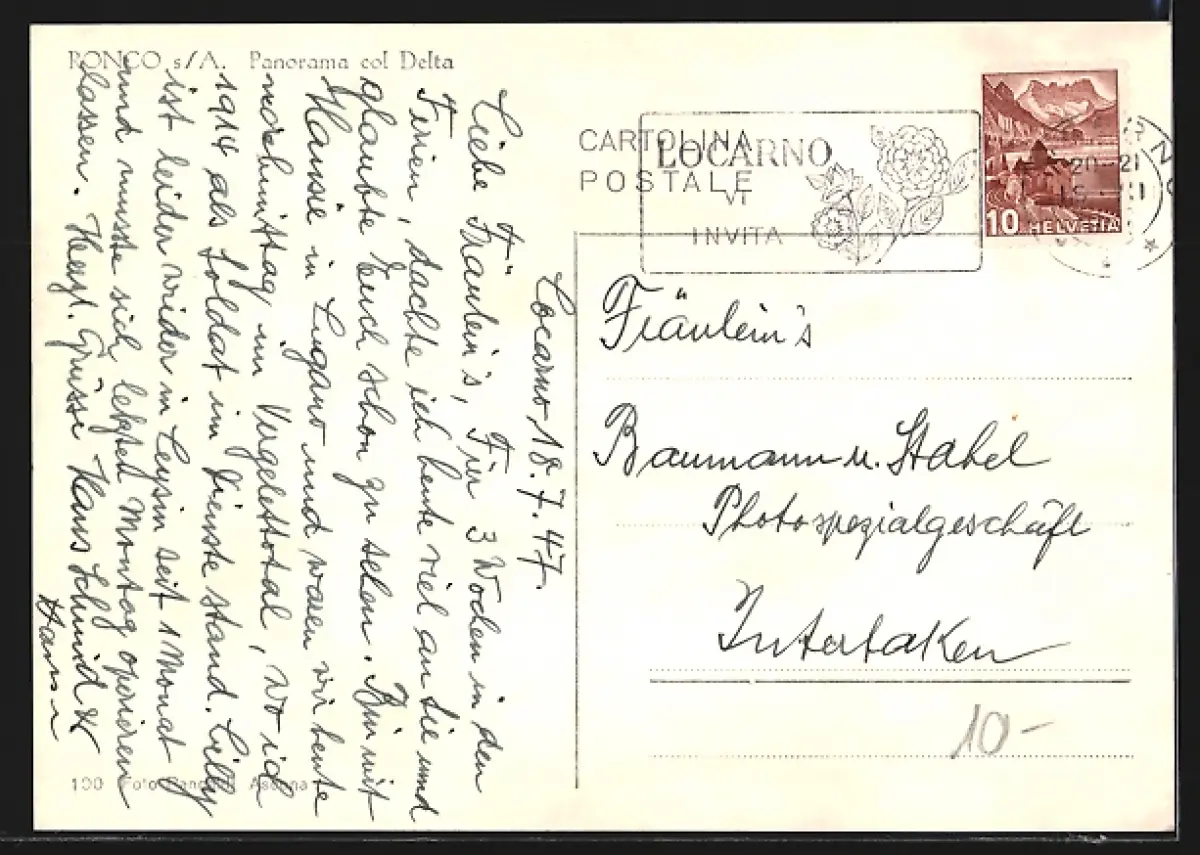 RONCO s/A. Panorama col Delta
Locarno 18.7.47.
Liebe Fräulein's, Für 3 Wochen in den
Ferien, dachte ich heute viel an Sie und
glaubte Euch schon zu sehen. Bin mit
Hansli in Lugano und waren wir heute
nachmittag im Vergelettotal, wo ich
1914 als Soldat im Dienste stand. Cilly
ist leider wieder in Leysin seit 1 Monat
und musste sich letzten Montag operieren
lassen. Herzl. Grüsse Hans Schmid &
190 Foto Ascona
CARTOLINA
POSTALE
LOCARNO
VI
INVITA
10 HELVETIA
20-21
Fräulein's
Baumann u. Stahel
Photospezialgeschäft
Interlaken
10-